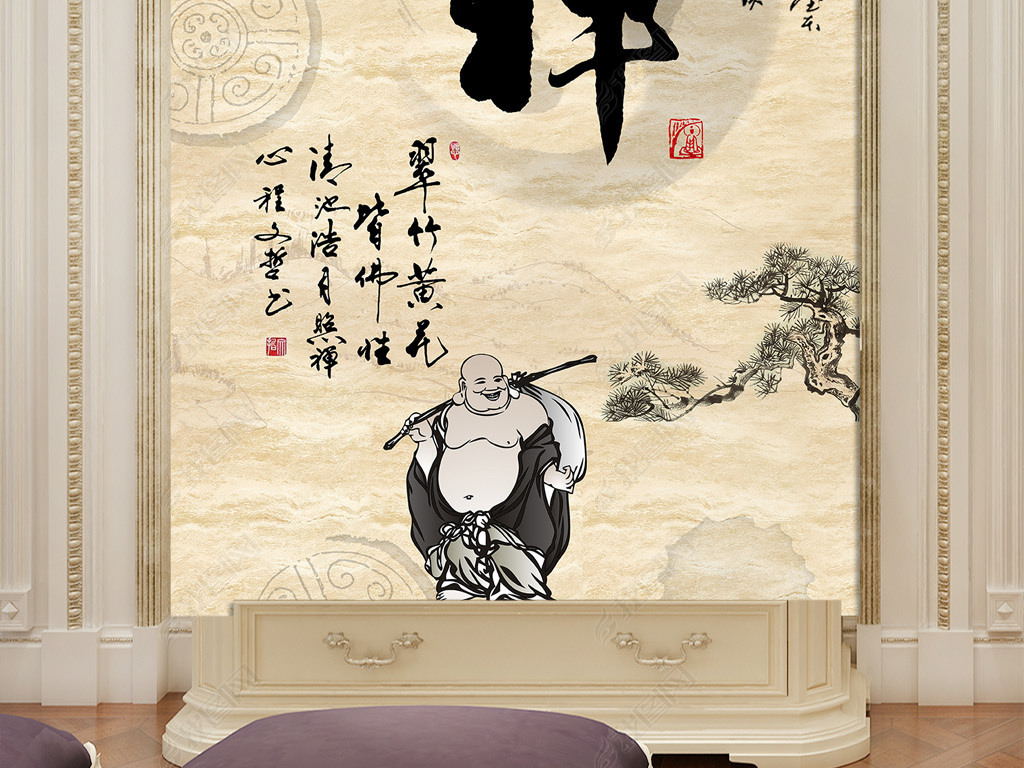 翠竹黄花
皆佛性
清池浩月照禪
心程文哲书